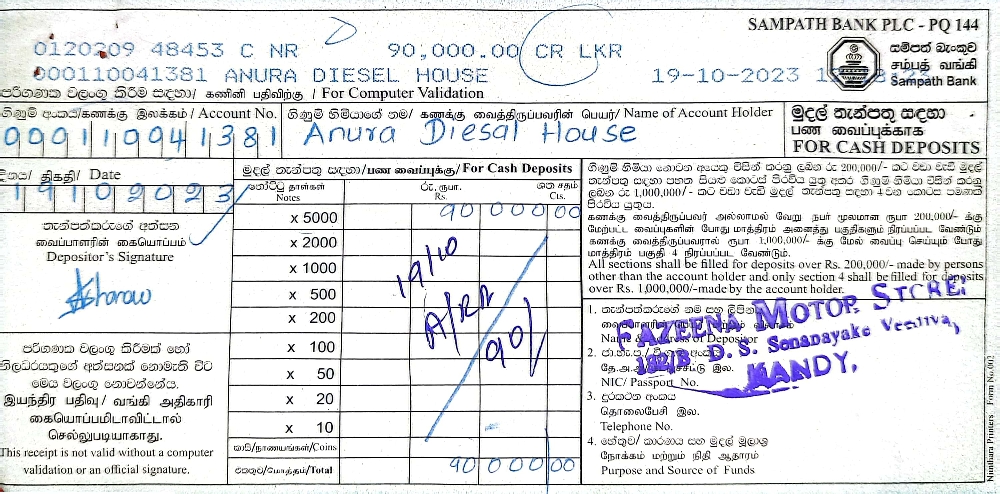 SAMPATH BANK PLC - PQ 144
0120209 48453 C NR 90,000.00 CR LKR
සම්පත් බැංකුව
சம்பத் வங்கி
Sampath Bank
000110041381 ANURA DIESEL HOUSE 19-10-2023
පරිගණක වලංගු කිරීම සඳහා/ கணினி பதிவிற்கு / For Computer Validation
ගිණුම් අංකය/கணக்கு இலக்கம் / Account No.
000110041381
ගිණුම් හිමියාගේ නම/ கணக்கு வைத்திருப்பவரின் பெயர்/ Name of Account Holder
Anura Diesal House
මුදල් තැන්පතු සඳහා
பண வைப்புக்காக
FOR CASH DEPOSITS
දිනය/ திகதி/ Date
19102023
තැන්පත්කරුගේ අත්සන
வைப்பாளரின் கையொப்பம்
Depositor's Signature
පරිගණක වලංගු කිරීමක් හෝ
නිලධරයකුගේ අත්සනක් නොමැති විට
මෙය වලංගු නොවන්නේය.
இயந்திர பதிவு/ வங்கி அதிகாரி
கையொப்பமிடாவிட்டால்
செல்லுபடியாகாது.
This receipt is not valid without a computer
validation or an official signature.
මුදල් තැන්පතු සඳහා/பண வைப்புக்கு/For Cash Deposits
නෝට්ටු தாள்கள் රු. ரூபா. ශත சதம்
Notes Rs. Cts.
x 5000 90000 00
x 2000
x 1000
x 500
x 200
x 100
x 50
x 20
x 10
කාසි/நாணயங்கள்/Coins
එකතුව/மொத்தம்/Total 90000 00
19/10
90/
ගිණුම් හිමියා නොවන අයකු විසින් කරනු ලබන රු 200,000/- කට වඩා වැඩි මුදල්
තැන්පතු සඳහා පහත සියළු කොටස් පිරවිය යුතු අතර ගිණුම් හිමියා විසින් කරනු
ලබන රු 1,000,000/- කට වඩා වැඩි මුදල් තැන්පතු සඳහා 4 වන කොටස පමණක්
පිරවිය යුතුය.
கணக்கு வைத்திருப்பவர் அல்லாமல் வேறு நபர் மூலமான ரூபா 200,000/- க்கு
மேற்பட்ட வைப்புகளின் போது மாத்திரம் அனைத்து பகுதிகளும் நிரப்பப்பட வேண்டும்
கணக்கு வைத்திருப்பவரால் ரூபா 1,000,000/- க்கு மேல் வைப்பு செய்யும் போது
மாத்திரம் பகுதி 4 நிரப்பப்பட வேண்டும்.
All sections shall be filled for deposits over Rs. 200,000/- made by persons
other than the account holder and only section 4 shall be filled for deposits
over Rs. 1,000,000/-made by the account holder.
1. තැන්පත්කරුගේ නම සහ ලිපිනය
Name & Address of Depositor
FAZEENA MOTOR STORES
182/B D. S. Senanayake Veediya,
KANDY,
2. ජා.හැ.ප./
NIC/ Passport No.
3. දුරකථන අංකය
தொலைபேசி இல.
Telephone No.
4. හේතුව/ කාරණය සහ මුදල් මූලාශ්‍ර
நோக்கம் மற்றும் நிதி ஆதாரம்
Purpose and Source of Funds
Ninthara Printers Form No.002